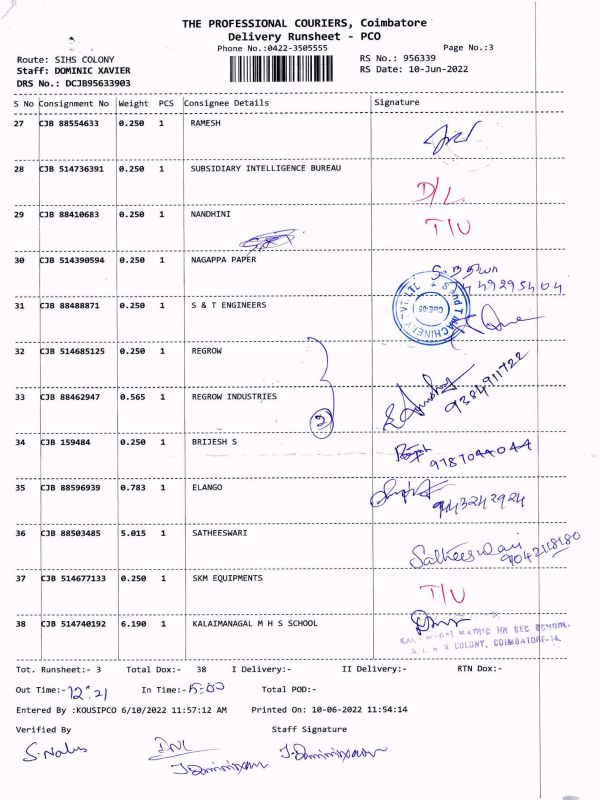 THE PROFESSIONAL COURIERS, Coimbatore
Delivery Runsheet - PCO
Phone No.:0422-3505555
Page No.:3
Route: SIHS COLONY
RS No.: 956339
Staff: DOMINIC XAVIER
RS Date: 10-Jun-2022
DRS No.: DCJB95633903
S No Consignment No Weight PCS Consignee Details Signature
27 CJB 88554633 0.250 1 RAMESH
28 CJB 514736391 0.250 1 SUBSIDIARY INTELLIGENCE BUREAU
D/L
29 CJB 88410683 0.250 1 NANDHINI
T/U
30 CJB 514390594 0.250 1 NAGAPPA PAPER
31 CJB 88488871 0.250 1 S & T ENGINEERS
32 CJB 514685125 0.250 1 REGROW
33 CJB 88462947 0.565 1 REGROW INDUSTRIES
2
9384911722
34 CJB 159484 0.250 1 BRIJESH S
9787044044
35 CJB 88596939 0.783 1 ELANGO
9443242924
36 CJB 88503485 5.015 1 SATHEESWARI
Satheeswari
9042118180
37 CJB 514677133 0.250 1 SKM EQUIPMENTS
T/U
38 CJB 514740192 6.190 1 KALAIMANAGAL M H S SCHOOL
MATRIC HR SEC SCHOOL
COLONY, COIMBATORE-14.
Tot. Runsheet:- 3 Total Dox:- 38 I Delivery:- II Delivery:- RTN Dox:-
Out Time:- 12:21 In Time:- 15:00 Total POD:-
Entered By :KOUSIPCO 6/10/2022 11:57:12 AM Printed On: 10-06-2022 11:54:14
Verified By Staff Signature